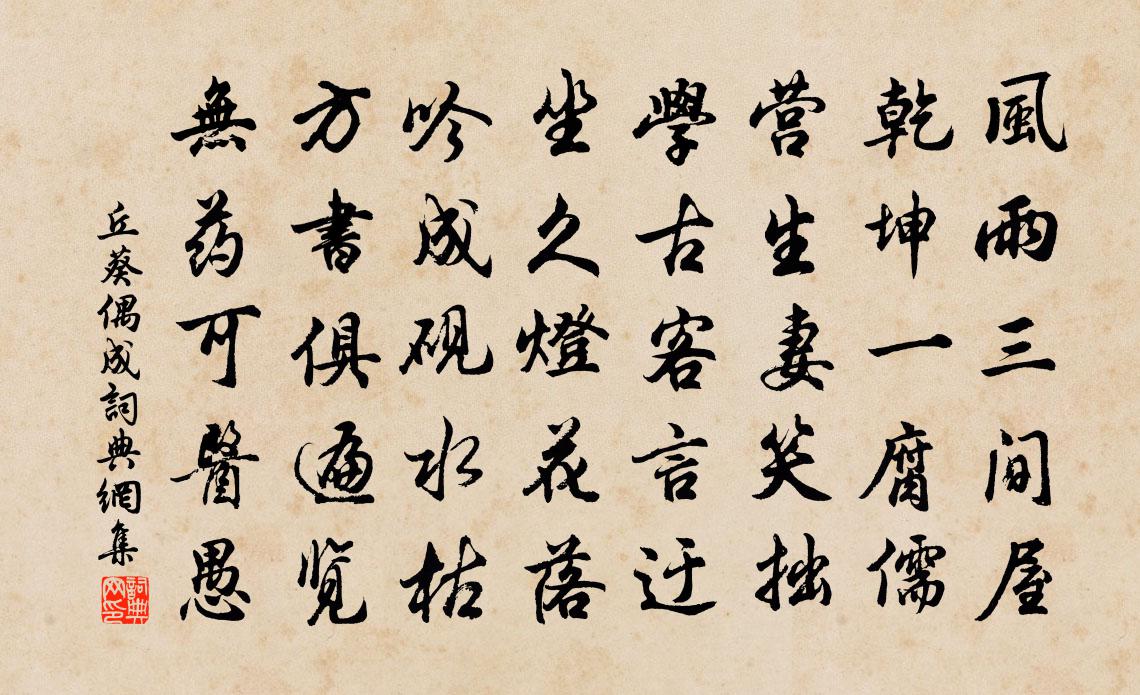 風雨三间屋
乾坤一腐儒
营生妻笑拙
學古客言迂
坐久燈花落
吟成砚水枯
方書俱遍览
無药可醫愚
丘葵偶成詞典網集
詞典网印